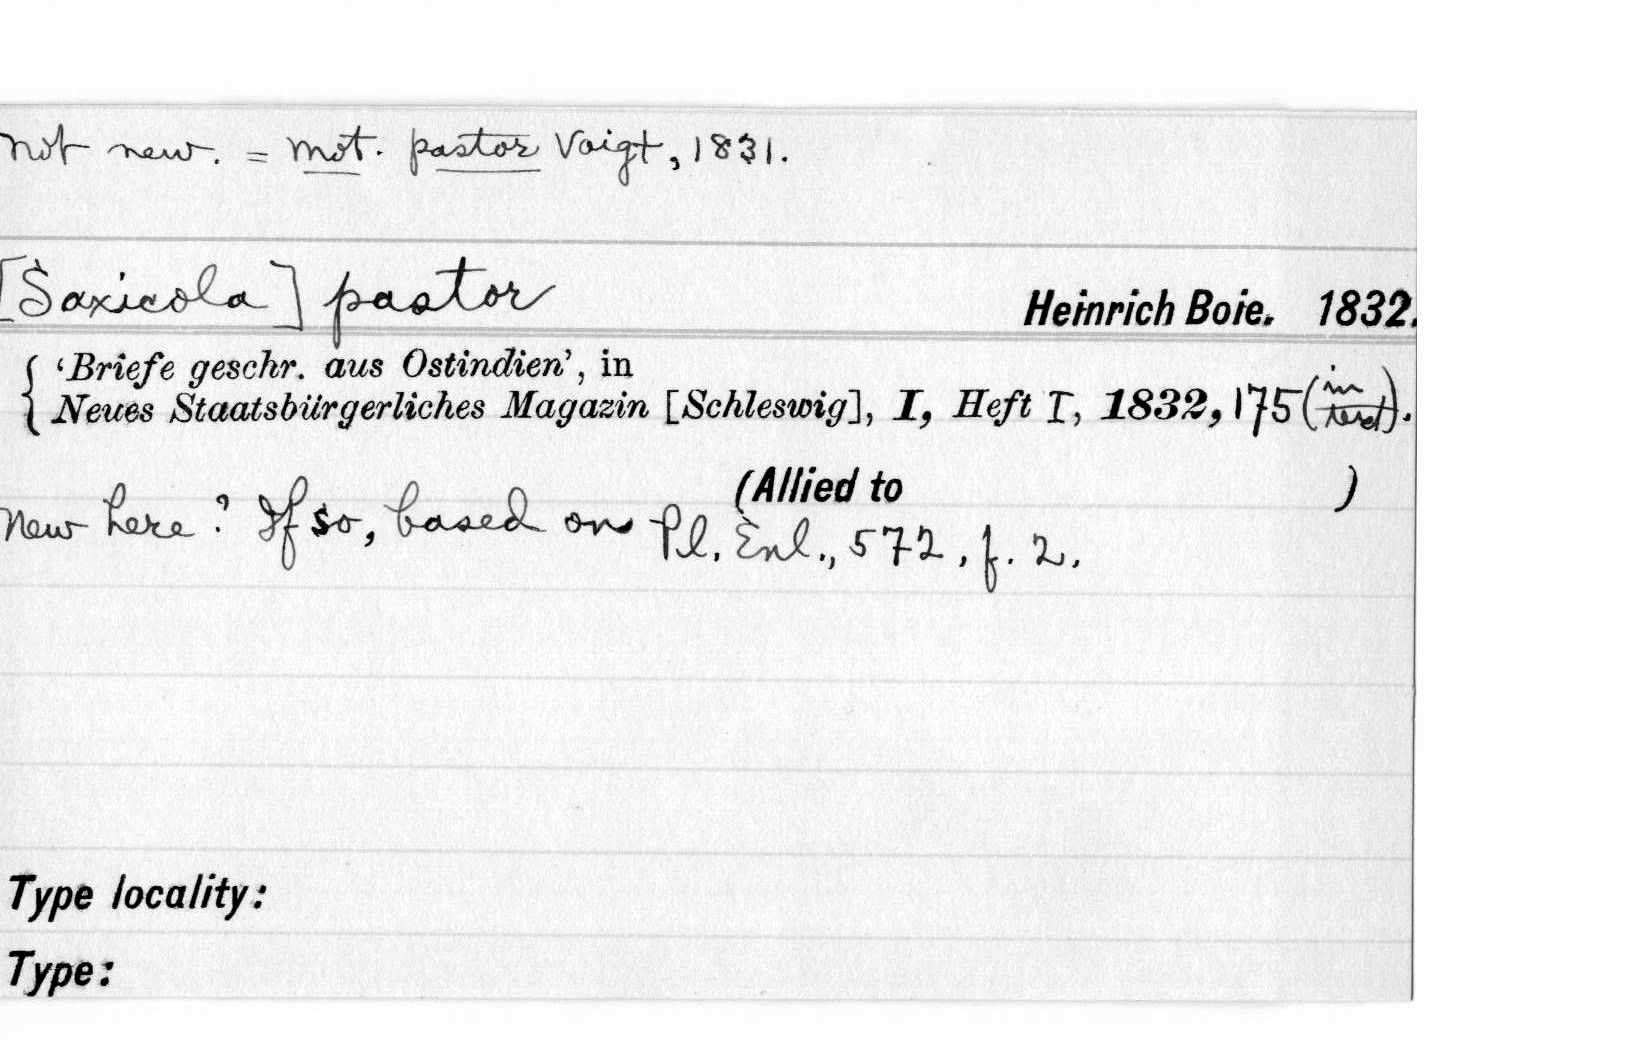 Not new. = Mot. pastor Voigt, 1831.
[Saxicola] pastor Heinrich Boie. 1832.
'Briefe geschr. aus Ostindien', in
Neues Staatsbürgerliches Magazin [Schleswig], I, Heft I, 1832, 175 (in text).
(Allied to )
New here? If so, based on Pl. Enl., 572, f. 2.
Type locality:
Type: